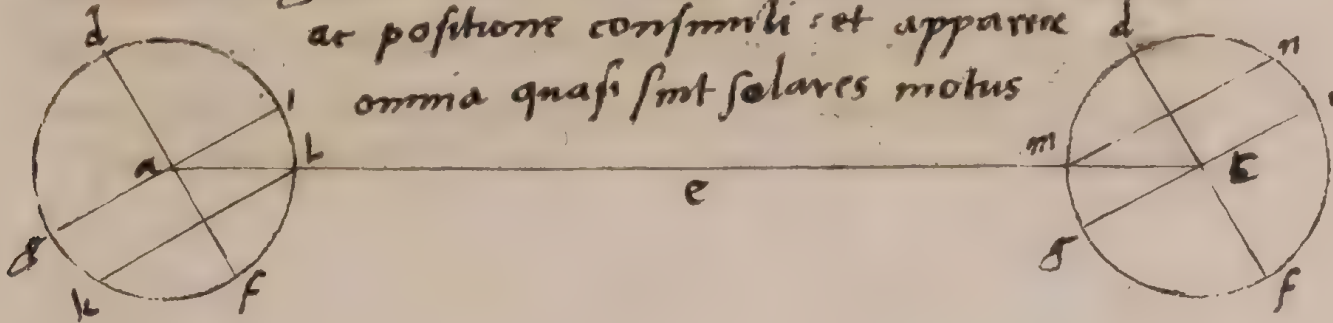 ac positione consimili : et apparere
omnia quasi sint solares motus
d
d
n
i
a
L
m
e
g
g
k
f
f